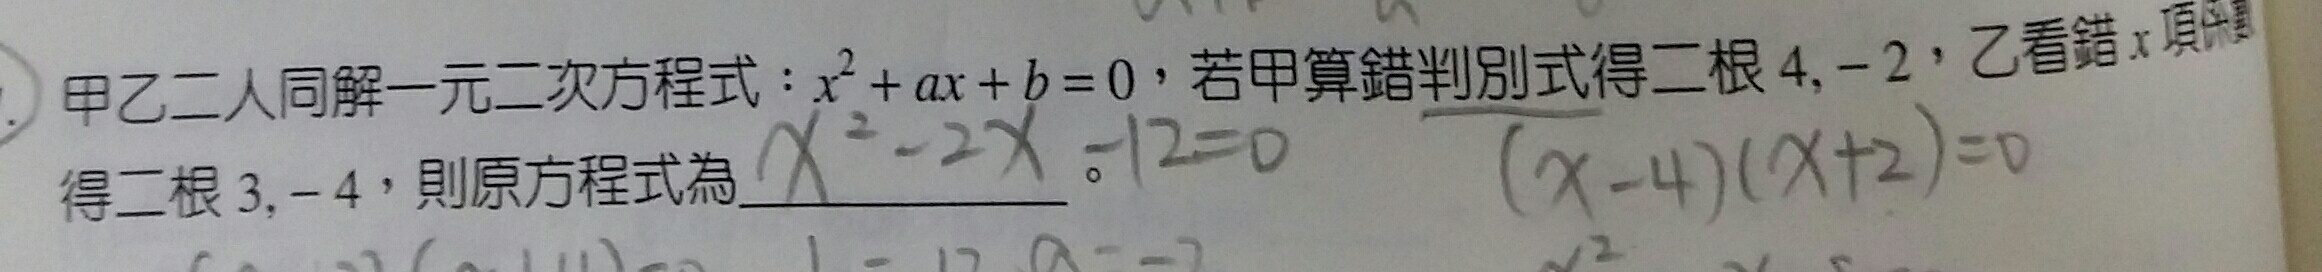 甲乙二人同解一元二次方程式：x² + ax + b = 0，若甲算錯判別式得二根 4, − 2，乙看錯 x 項係數
得二根 3, − 4，則原方程式為 x² - 2x - 12 = 0 。
(x-4)(x+2)=0